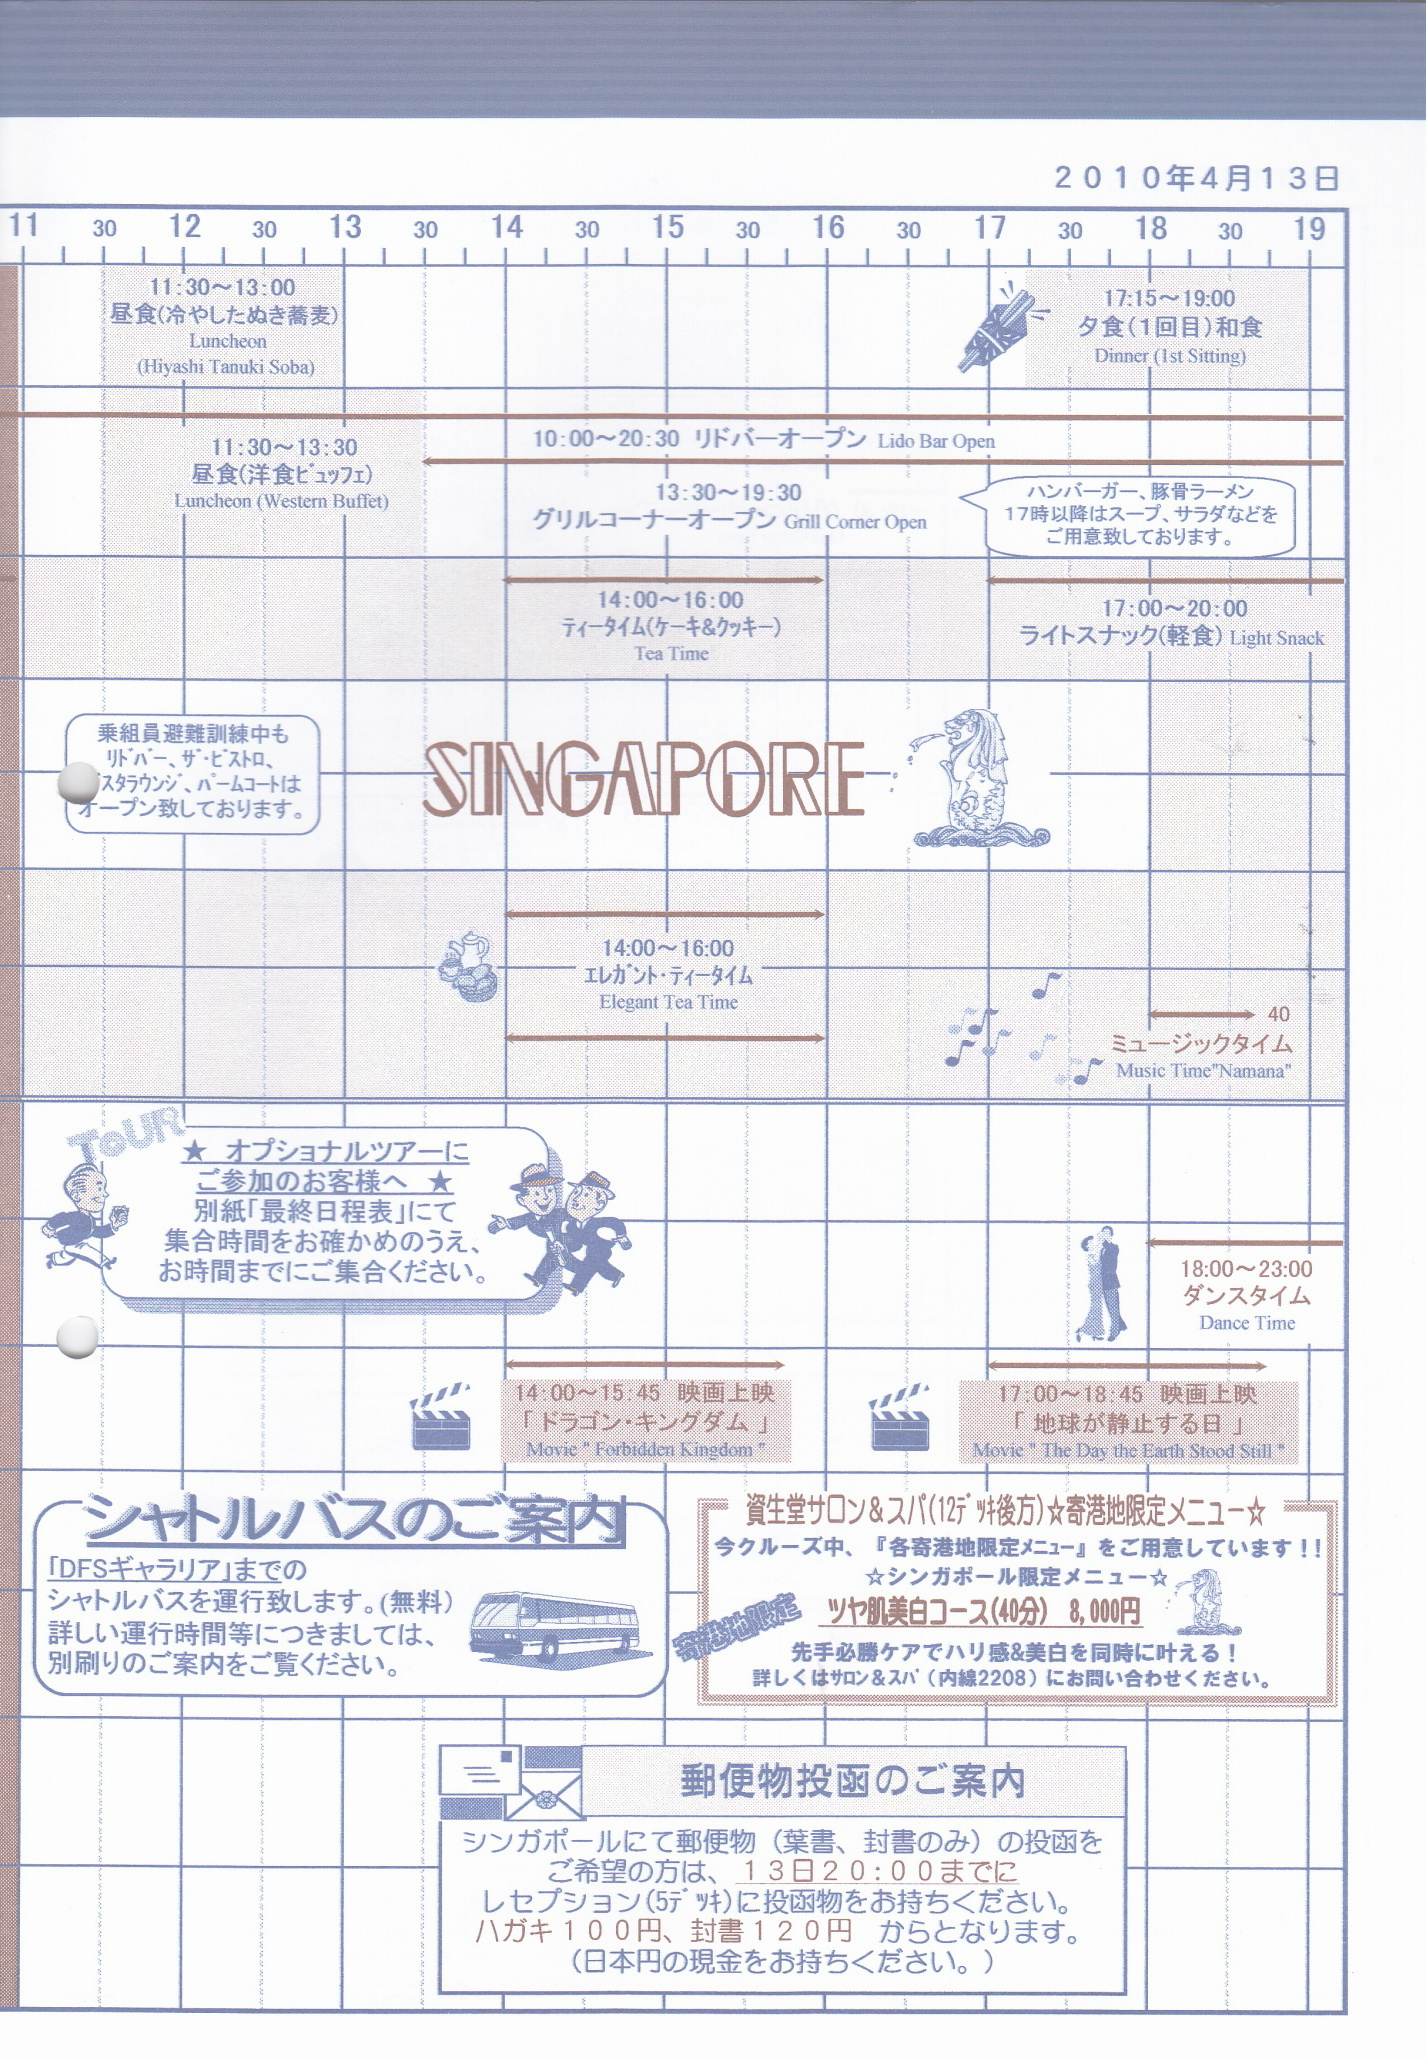 2010年4月13日
11 30 12 30 13 30 14 30 15 30 16 30 17 30 18 30 19
11:30～13:00
昼食(冷やしたぬき蕎麦)
Luncheon
(Hiyashi Tanuki Soba)
17:15～19:00
夕食(1回目)和食
Dinner (1st Sitting)
10:00～20:30 リドバーオープン Lido Bar Open
11:30～13:30
昼食(洋食ビュッフェ)
Luncheon (Western Buffet)
13:30～19:30
グリルコーナーオープン Grill Corner Open
ハンバーガー、豚骨ラーメン
17時以降はスープ、サラダなどを
ご用意致しております。
14:00～16:00
ティータイム(ケーキ&クッキー)
Tea Time
17:00～20:00
ライトスナック(軽食) Light Snack
乗組員避難訓練中も
リドバー、ザ・ビストロ、
スタラウンジ、パームコートは
オープン致しております。
SINGAPORE
14:00～16:00
エレガント・ティータイム
Elegant Tea Time
40
ミュージックタイム
Music Time"Namana"
TOUR
★ オプショナルツアーに
ご参加のお客様へ ★
別紙「最終日程表」にて
集合時間をお確かめのうえ、
お時間までにご集合ください。
18:00～23:00
ダンスタイム
Dance Time
14:00～15:45 映画上映
「ドラゴン・キングダム」
Movie " Forbidden Kingdom "
17:00～18:45 映画上映
「 地球が静止する日 」
Movie " The Day the Earth Stood Still "
シャトルバスのご案内
「DFSギャラリア」までの
シャトルバスを運行致します。(無料)
詳しい運行時間等につきましては、
別刷りのご案内をご覧ください。
資生堂サロン＆スパ(12デッキ後方)☆寄港地限定メニュー☆
今クルーズ中、『各寄港地限定メニュー』をご用意しています！！
☆シンガポール限定メニュー☆
寄港地限定
ツヤ肌美白コース(40分) 8,000円
先手必勝ケアでハリ感&美白を同時に叶える！
詳しくはサロン＆スパ（内線2208）にお問い合わせください。
郵便物投函のご案内
シンガポールにて郵便物（葉書、封書のみ）の投函を
ご希望の方は、13日20:00までに
レセプション(5デッキ)に投函物をお持ちください。
ハガキ100円、封書120円 からとなります。
（日本円の現金をお持ちください。）